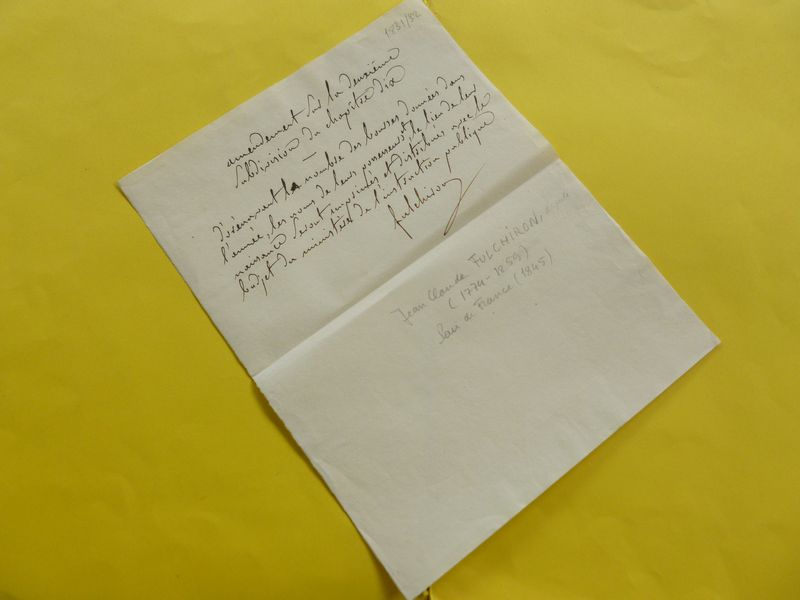 1831/32
amendement sur la deuxième
subdivision du chapitre dix
—
Dorénavant le nombre des bourses données dans
l'année, les noms de leurs possesseurs et le lieu de leur
naissance seront imprimés et distribués avec le
budget du ministère de l'instruction publique
fulchiron
Jean Claude FULCHIRON, député
(1774-1859)
Pair de France (1845)